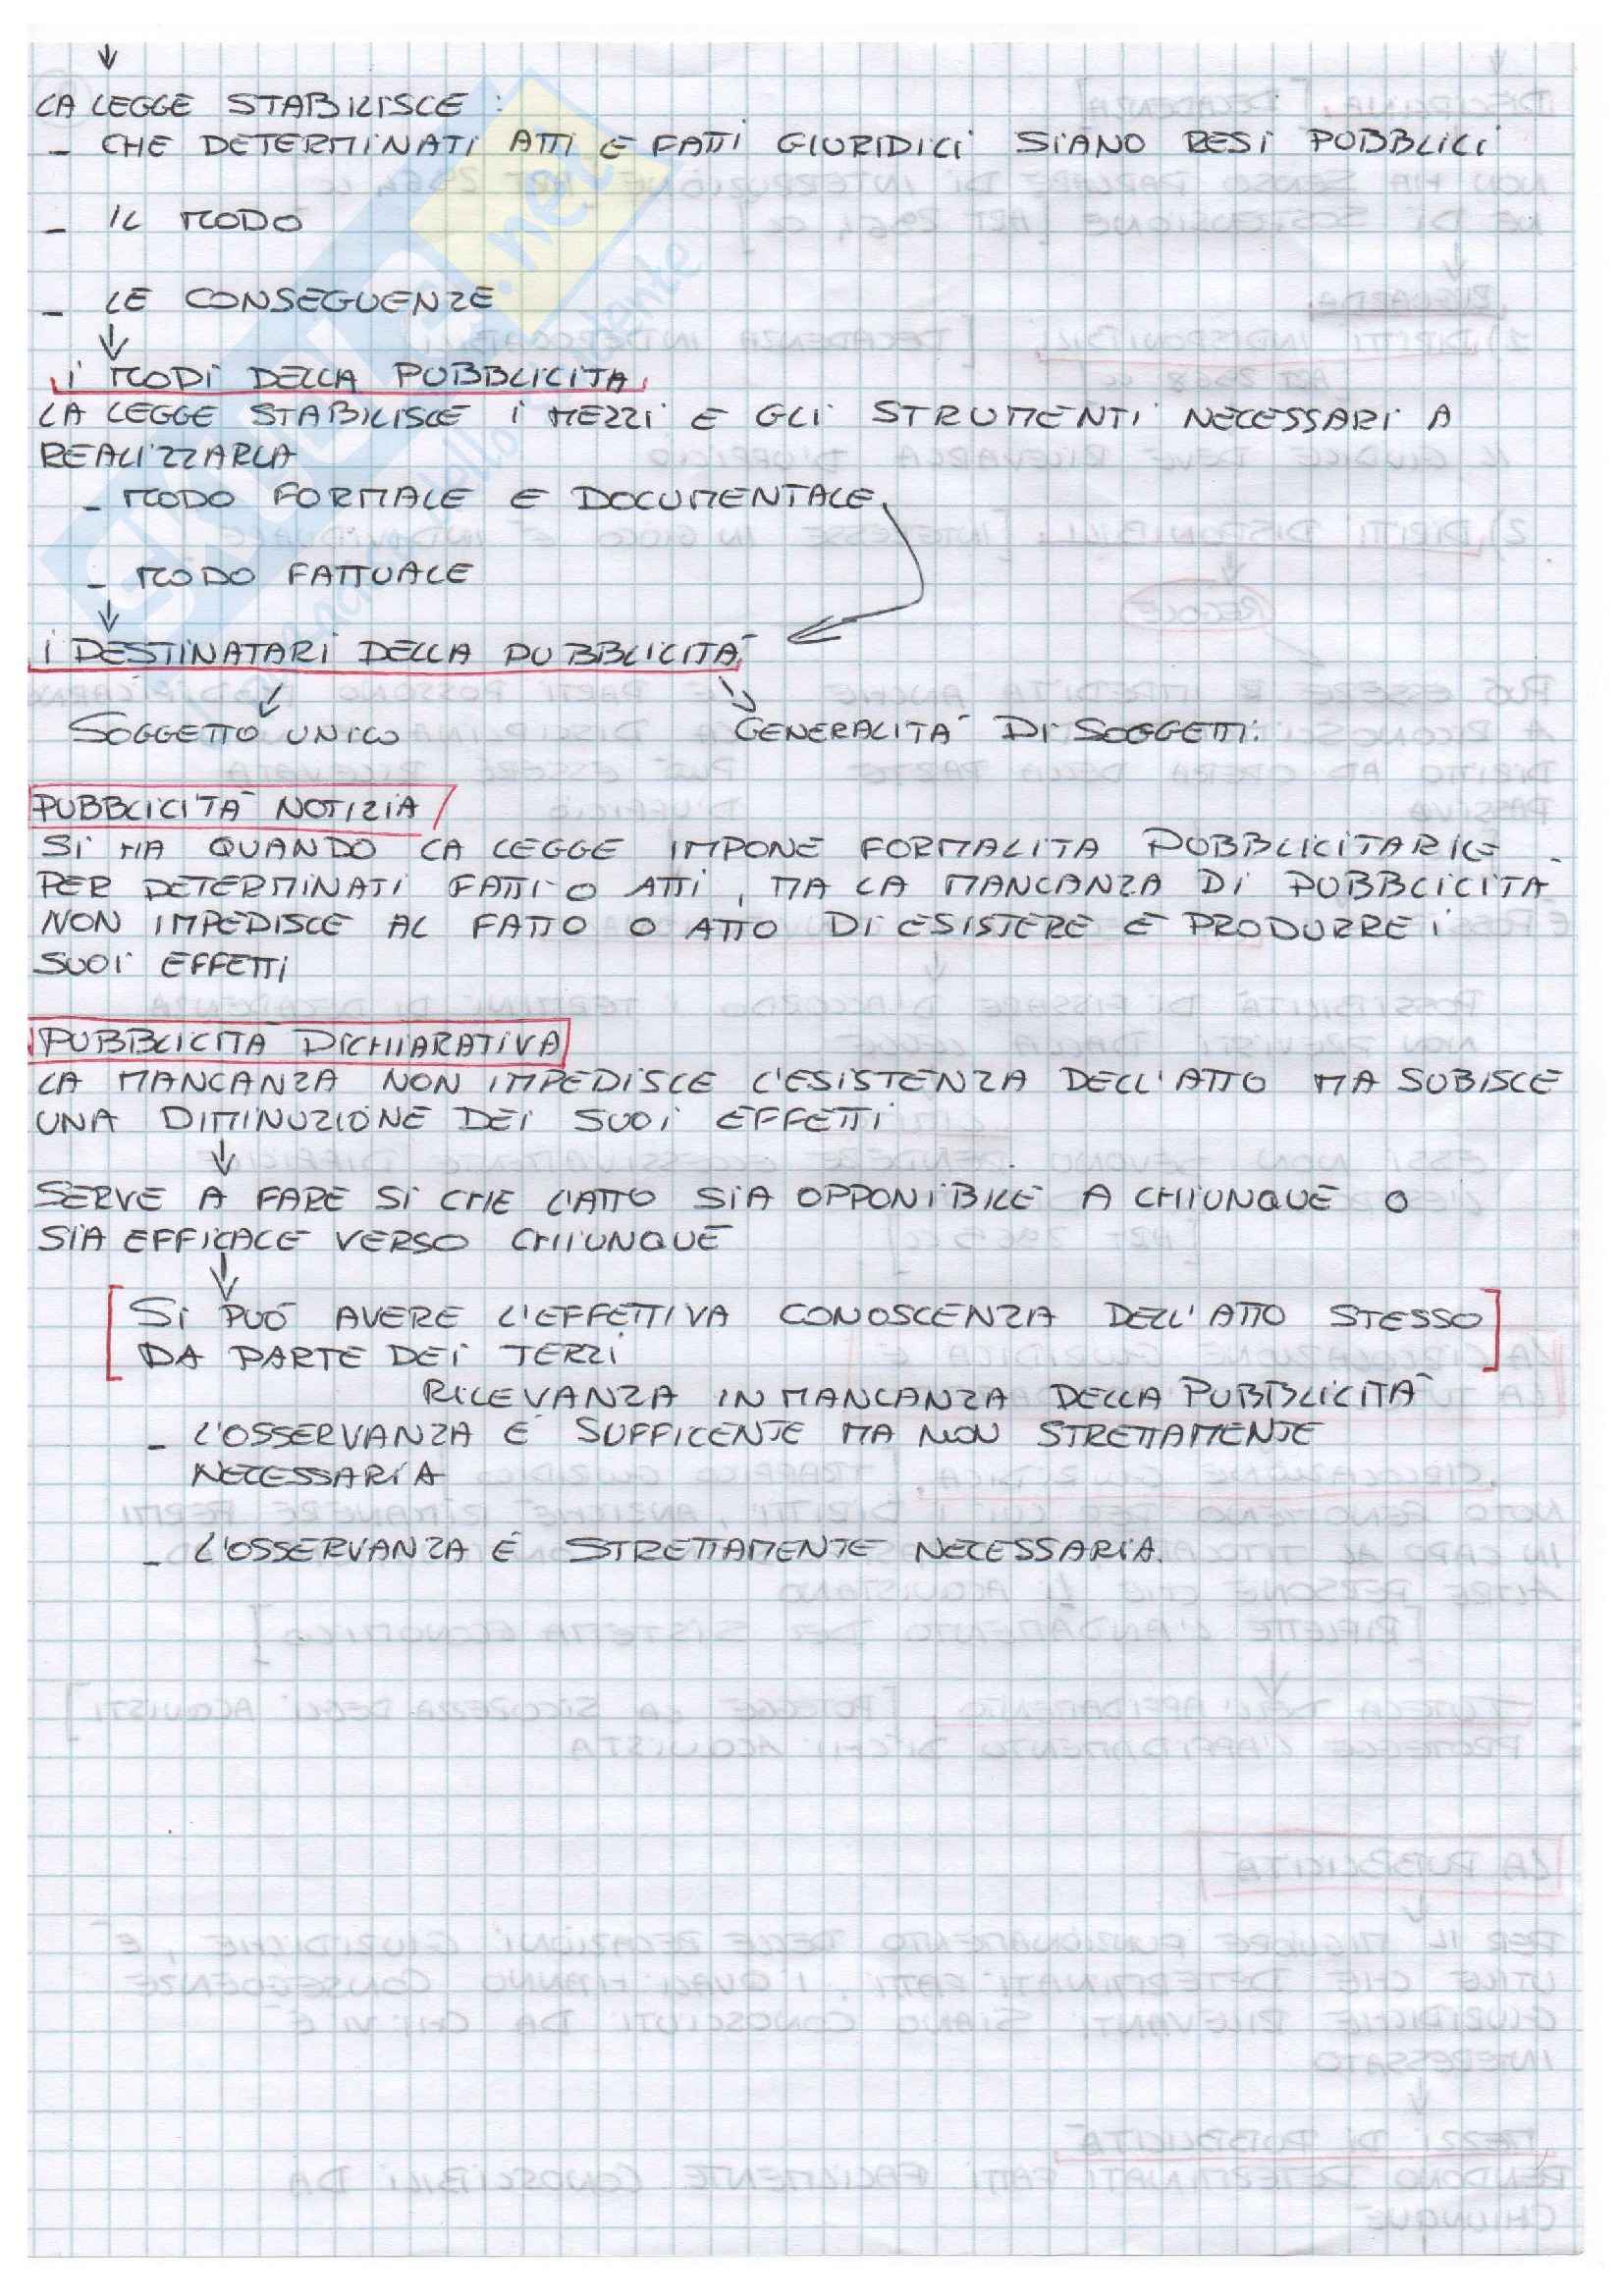 LA LEGGE STABILISCE :
- CHE DETERMINATI ATTI E FATTI GIURIDICI SIANO RESI PUBBLICI
- IL MODO
- LE CONSEGUENZE
I MODI DELLA PUBBLICITA
LA LEGGE STABILISCE I MEZZI E GLI STRUMENTI NECESSARI A
REALIZZARLA
- MODO FORMALE E DOCUMENTALE
- MODO FATTUALE
I DESTINATARI DELLA PUBBLICITÀ
SOGGETTO UNICO GENERALITÀ DI SOGGETTI.
PUBBLICITÀ NOTIZIA
SI HA QUANDO LA LEGGE IMPONE FORMALITA PUBBLICITARIE
PER DETERMINATI FATTI O ATTI, MA LA MANCANZA DI PUBBLICITÀ
NON IMPEDISCE AL FATTO O ATTO DI ESISTERE E PRODURRE I
SUOI EFFETTI
PUBBLICITÀ DICHIARATIVA
LA MANCANZA NON IMPEDISCE L'ESISTENZA DELL'ATTO MA SUBISCE
UNA DIMINUZIONE DEI SUOI EFFETTI
SERVE A FARE SI CHE L'ATTO SIA OPPONIBILE A CHIUNQUE O
SIA EFFICACE VERSO CHIUNQUE
[SI PUÒ AVERE L'EFFETTIVA CONOSCENZA DELL'ATTO STESSO
DA PARTE DEI TERZI]
RILEVANZA IN MANCANZA DELLA PUBBLICITÀ
- L'OSSERVANZA È SUFFICENTE MA NON STRETTAMENTE
NECESSARIA
- L'OSSERVANZA È STRETTAMENTE NECESSARIA.